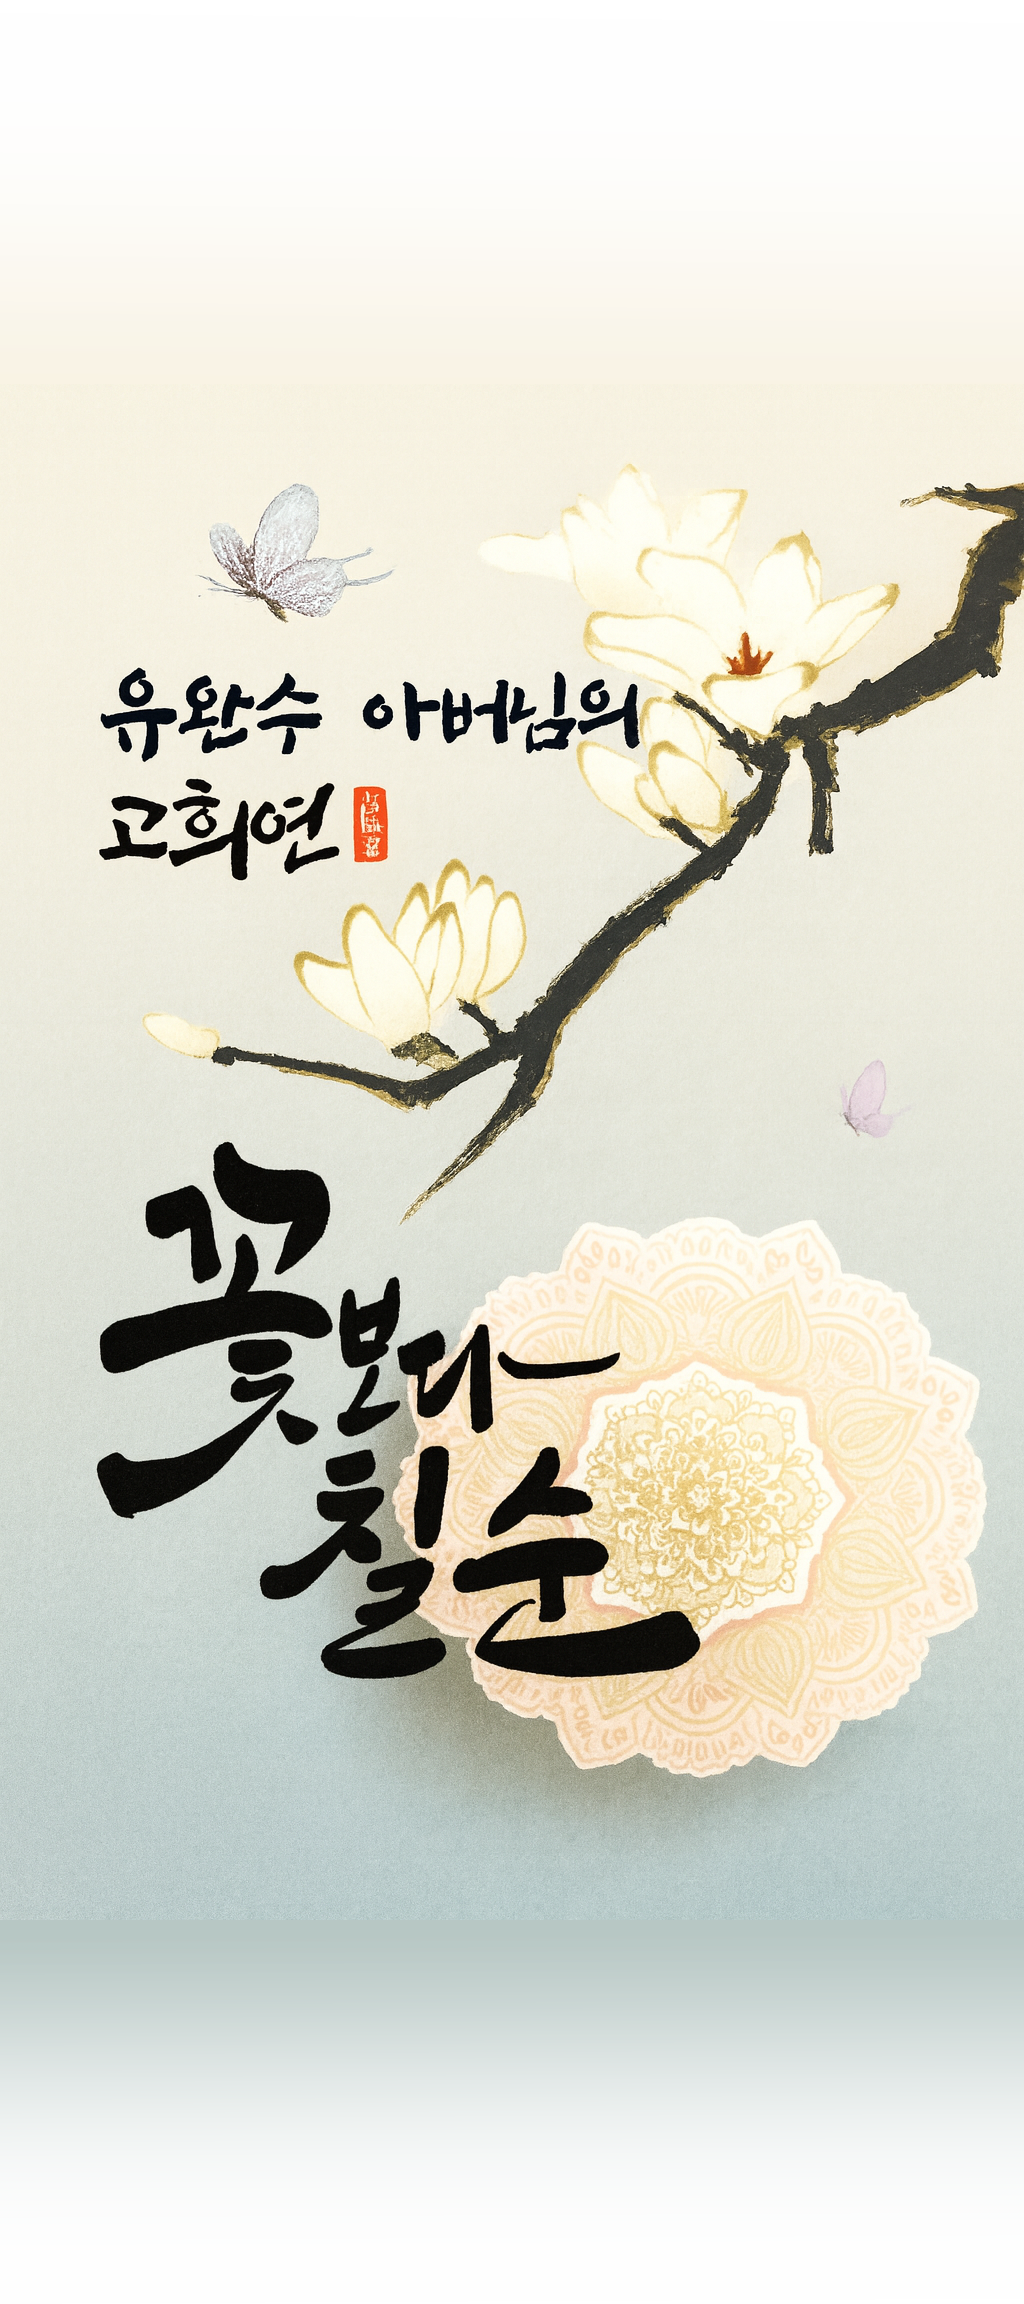 유완수 아버님의
고희연
꽃보다
칠순